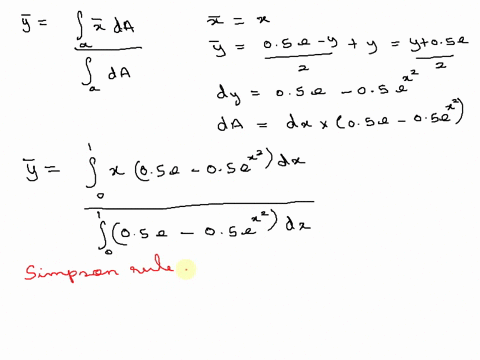 ȳ = ∫ₐ x̄ dA / ∫ₐ dA
x̄ = x
ȳ = (0.5e - y)/2 + y = (y + 0.5e)/2
dy = 0.5e - 0.5e^(x²)
dA = dx × (0.5e - 0.5e^(x²))
ȳ = ∫₀¹ x (0.5e - 0.5e^(x²)) dx / ∫₀¹ (0.5e - 0.5e^(x²)) dx
Simpson rule.